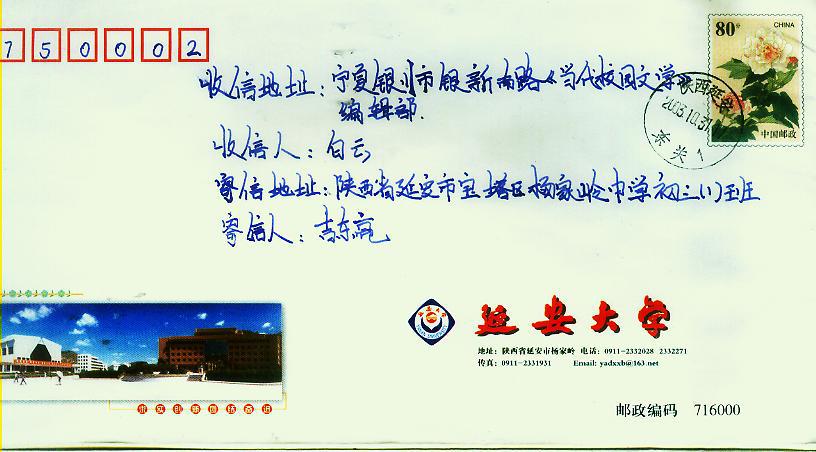 750002
80分
CHINA
中国邮政
收信地址：宁夏银川市银新南路《当代校园文学》
编辑部.
收信人：白云
寄信地址：陕西省延安市宝塔区杨家岭中学初三(1)班
寄信人：吉东亮
陕西延安
2003.10.31.17
东关1
延安大学
地址：陕西省延安市杨家岭 电话：0911-2332028 2332271
传真：0911-2331931 Email: yadxxb@163.net
求实创新团结奋进
邮政编码 716000